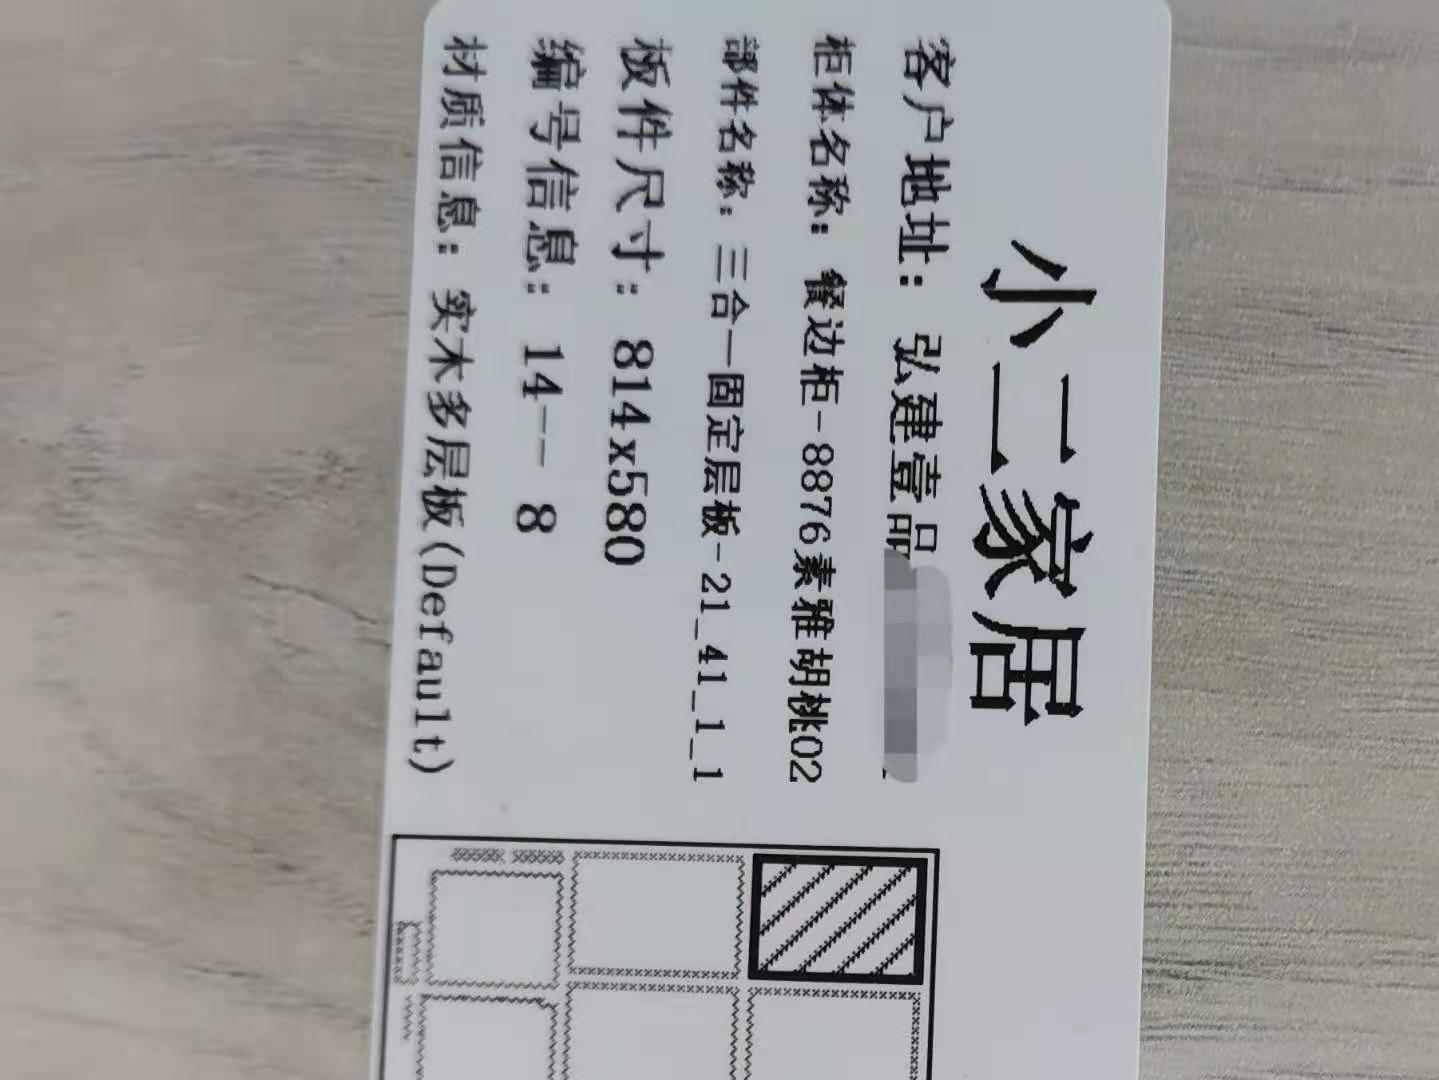 小二家居
客户地址：弘建壹品
柜体名称：餐边柜-8876素雅胡桃02
部件名称：三合一固定层板-21_41_1_1
板件尺寸：814x580
编号信息：14-- 8
材质信息：实木多层板(Default)